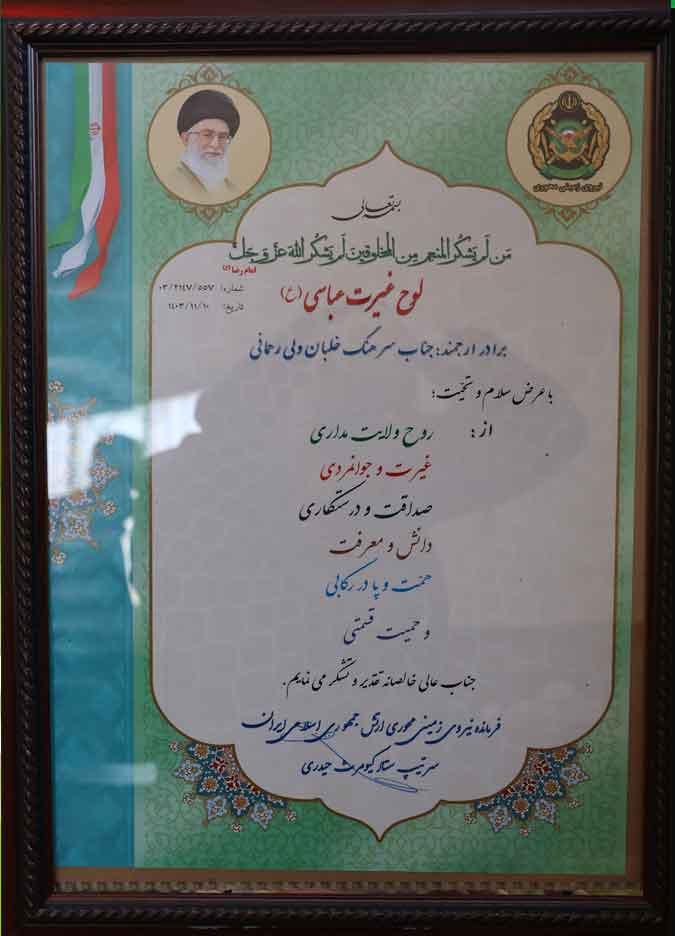 نیروی زمینی محوری
بسمه تعالی
مَن لَم یَشکُر المُنعِمَ مِنَ المَخلوقینَ لَم یَشکُرِ اللهَ عَزَّ وَ جَلَّ
امام رضا (ع)
لوح غیرت عباسی (ع)
شماره: ۰۳/۲۱۴۷/۵۵۷
تاریخ: ۱۴۰۳/۱۱/۱۰
برادر ارجمند؛ جناب سرهنگ خلبان ولی رحمانی
با عرض سلام و تحیّت؛
از: روح ولایت مداری
غیرت و جوانمردی
صداقت و درستکاری
دانش و معرفت
همّت و پا در رکابی
و حمیت قسمتی
جناب عالی خالصانه تقدیر و تشکر می نمایم.
فرمانده نیروی زمینی محوری ارتش جمهوری اسلامی ایران
سرتیپ ستاد کیومرث حیدری